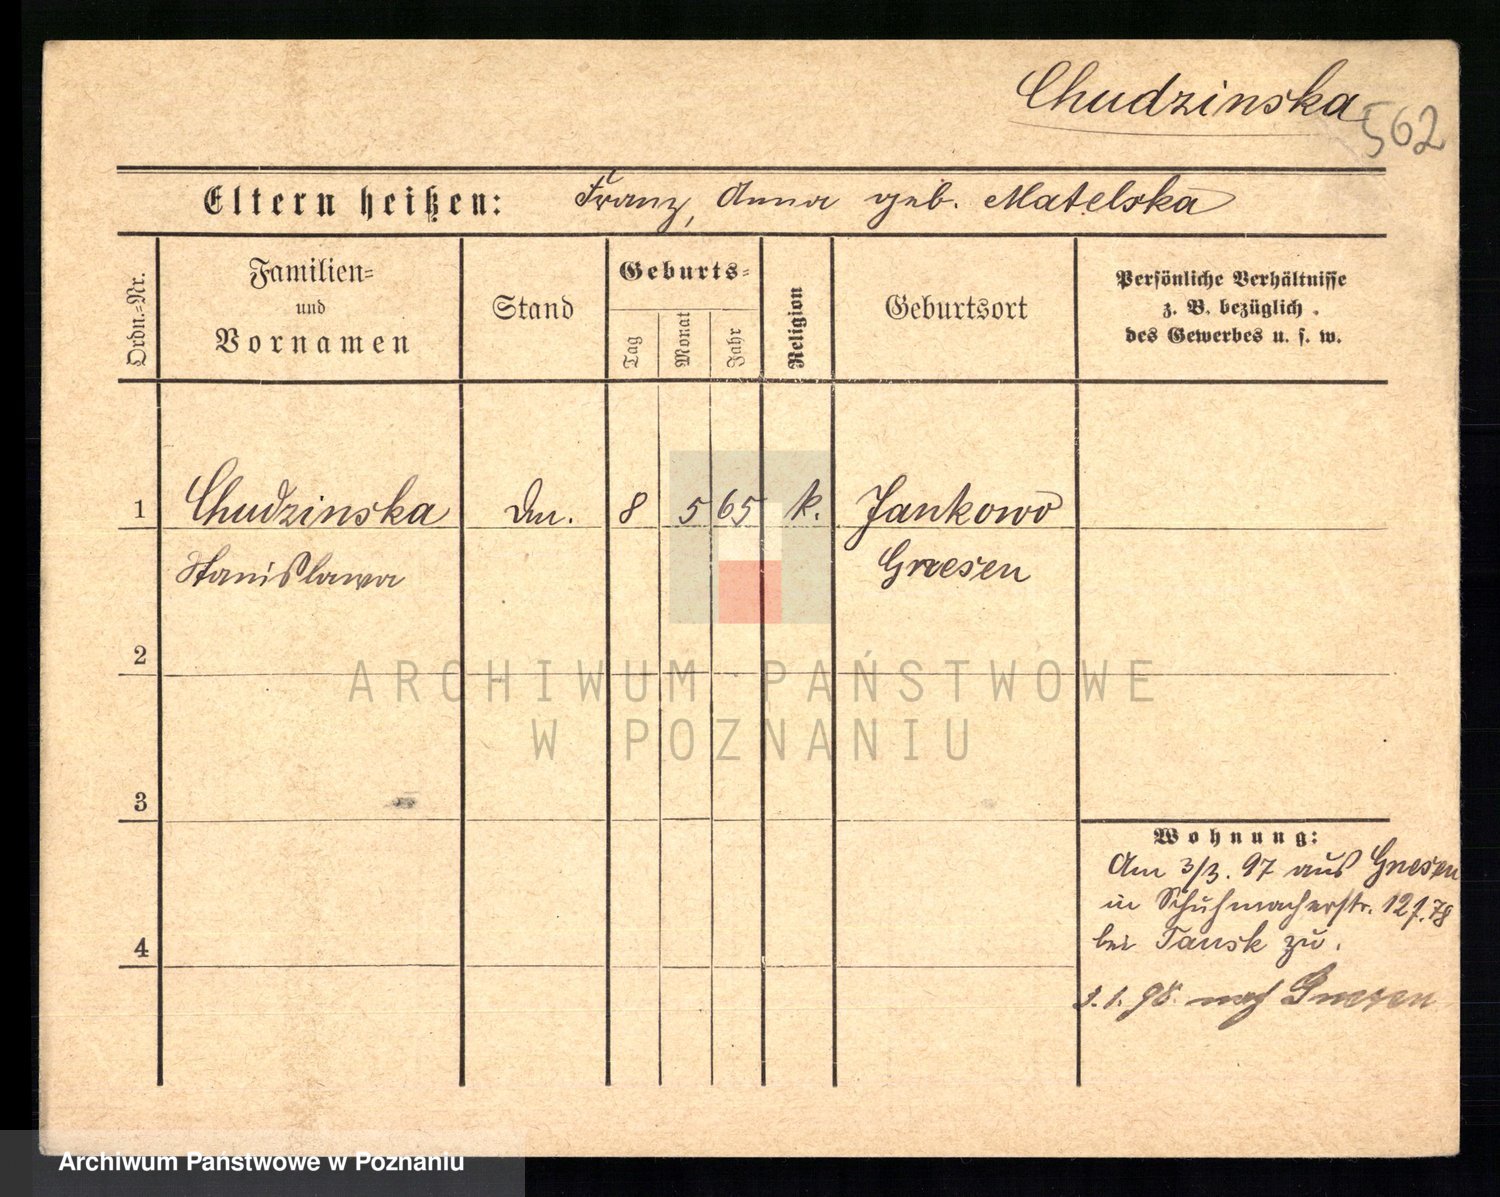 Chudzinska
562
Eltern heißen: Franz, Anna geb. Matelska
Ordn.=Nr.
Familien=
und
Vornamen
Stand
Geburts=
Tag
Monat
Jahr
Religion
Geburtsort
Persönliche Verhältnisse
z. B. bezüglich
des Gewerbes u. s. w.
1 Chudzinska 8 5 65 k. Jankowo
Stanislawa Gnesen
2
ARCHIWUM PAŃSTWOWE
W POZNANIU
3
Wohnung:
Am 3/3. 97 aus Gnesen
in Schuhmacherstr. 12
4
bei Tausk zu.
3.1.98 nach Gnesen
Archiwum Państwowe w Poznaniu